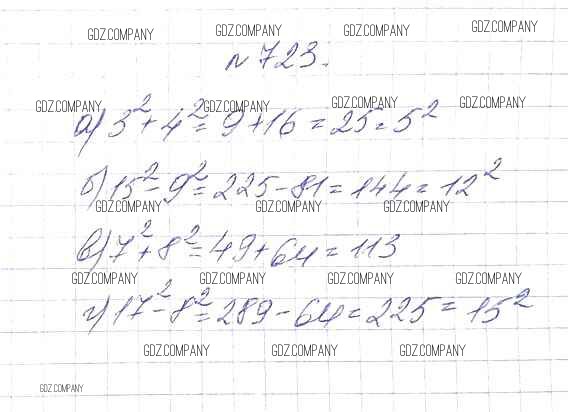 GDZ.COMPANY GDZ.COMPANY GDZ.COMPANY GDZ.COMPANY
№ 723.
GDZ.COMPANY GDZ.COMPANY GDZ.COMPANY GDZ.COMPANY
а) 3² + 4² = 9 + 16 = 25 = 5²
б) 15² - 9² = 225 - 81 = 144 = 12²
GDZ.COMPANY GDZ.COMPANY GDZ.COMPANY
в) 7² + 8² = 49 + 64 = 113
GDZ.COMPANY GDZ.COMPANY GDZ.COMPANY GDZ.COMPANY
г) 17² - 8² = 289 - 64 = 225 = 15²
GDZ.COMPANY GDZ.COMPANY GDZ.COMPANY
GDZ.COMPANY